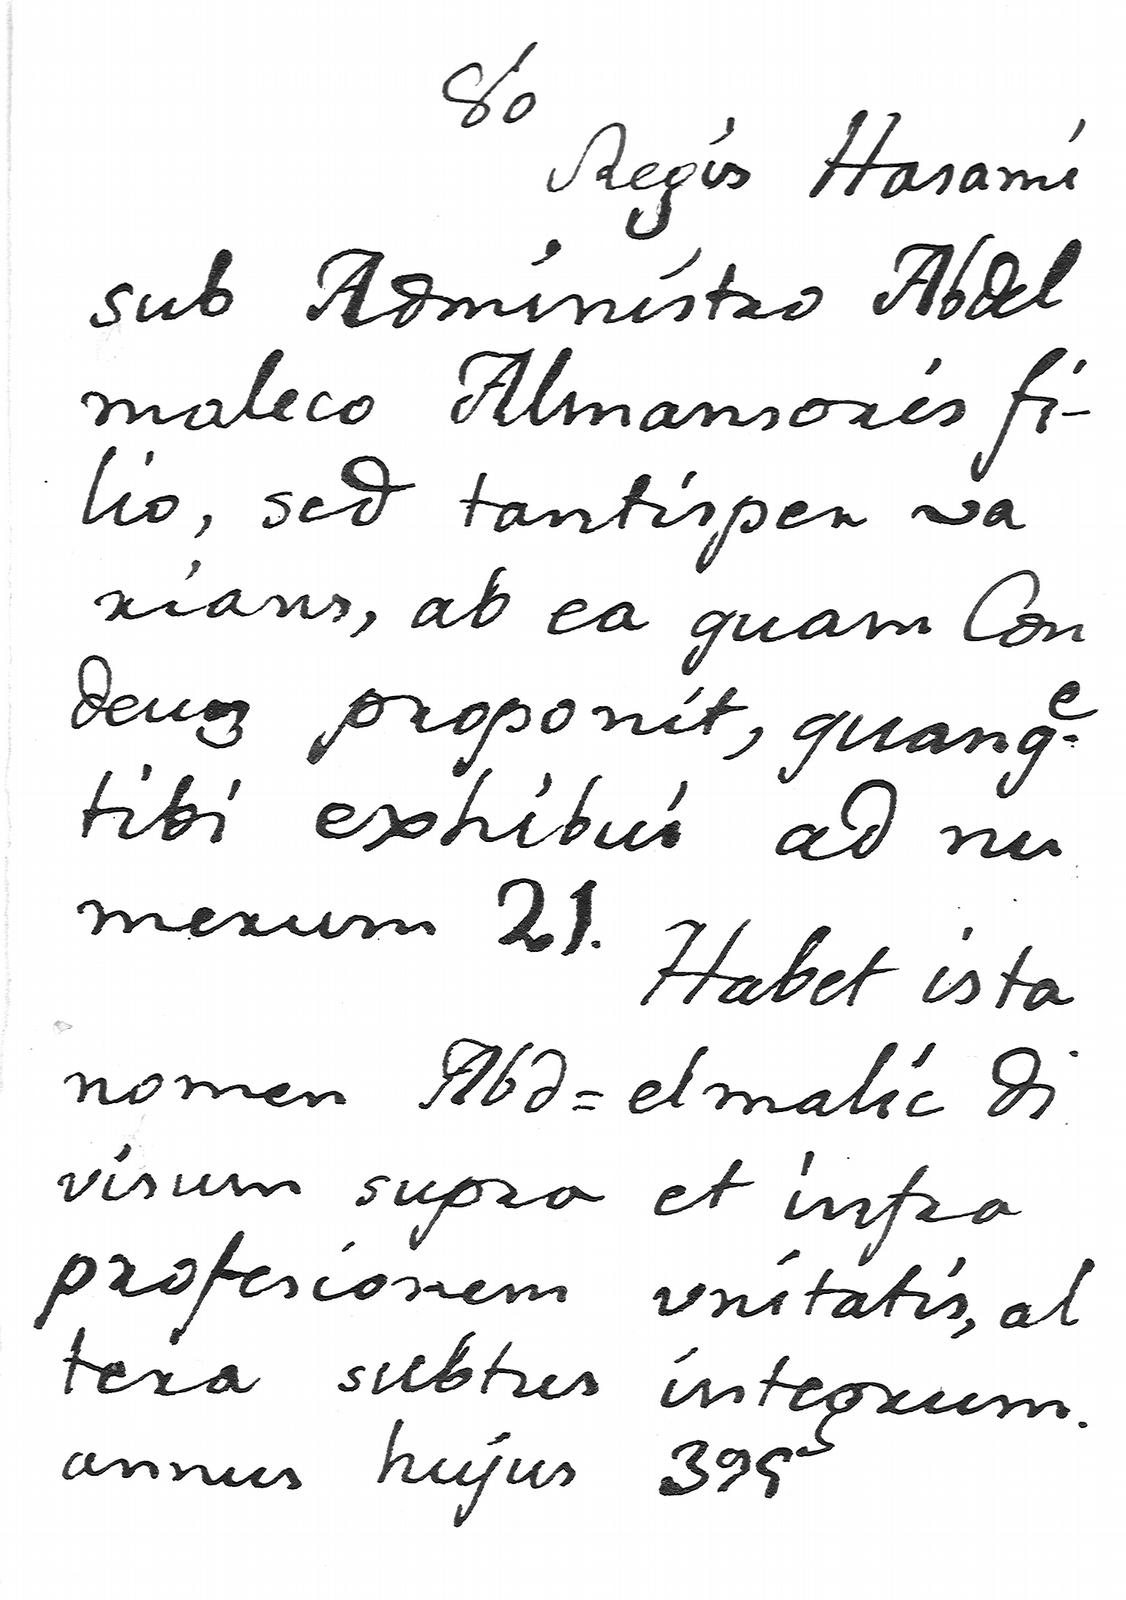 80
Regis Hasami
sub Administro Abdel
maleco Almansoris fi-
lio, sed tantisper va
rians, ab ea quam Con
deus proponit, quanq=e
tibi exhibui ad nu
merum 21.
Habet ista
nomen Abd=elmalic di
visum supra et infra
profesionem vnitatis, al
tera subtus integrum.
annus hujus 395